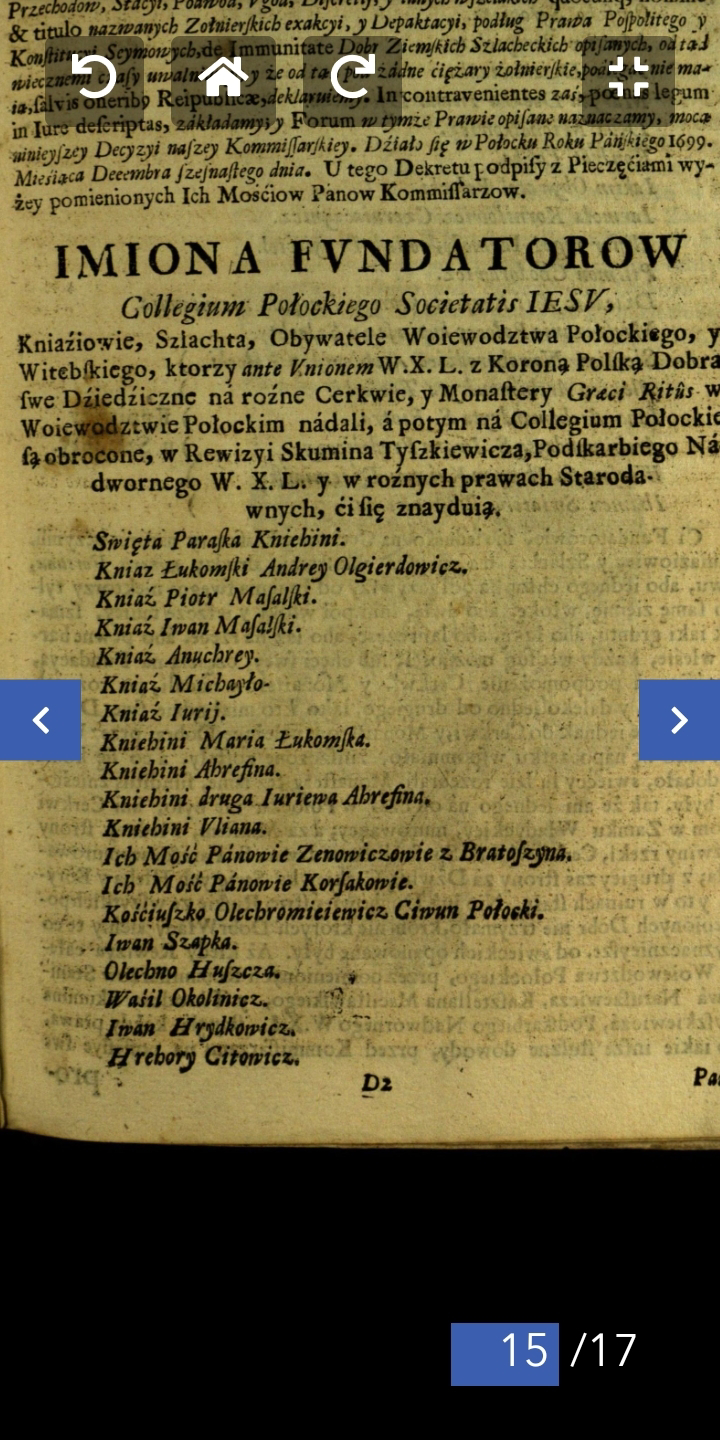 Przechodow, Stacyi, Podwod,
& titulo nazwanych Zołnierſkich exakcyi, y Depaktacyi, podług Prawa Poſpolitego y
Konſtitucyi Seymowych, de Immunitate Dobr Ziemſkich Szlacheckich opiſanych, od tad
wiecznemi czaſy że od żadne ciężary żołnierſkie, nie ma-
ia, ſalvis oneribꝰ Reipublicæ, deklaruiemy. In contravenientes zaś, pœnas legum
in Iure deſcriptas, zákładamy; y Forum w tymże Prawie opiſane náznaczamy, mocą
ninieyſzey Decyzyi naſzey Kommiſſarſkiey. Działo ſię w Połocku Roku Páńſkiego 1699.
Mieſiąca Decembra ſzeſnaſtego dnia. U tego Dekretu podpiſy z Pieczęćiami wy-
żey pomienionych Ich Mośćiow Panow Kommiſſarzow.
IMIONA FVNDATOROW
Collegium Połockiego Societatis IESV,
Kniaźiowie, Szlachta, Obywatele Woiewodztwa Połockiego, y
Witebſkiego, ktorzy ante Vnionem W. X. L. z Koroną Polſką Dobra
ſwe Dźiedźiczne ná rożne Cerkwie, y Monaſtery Græci Ritûs w
Woiewodztwie Połockim nádali, á potym ná Collegium Połockie
ſą obrocone, w Rewizyi Skumina Tyſzkiewicza, Podſkarbiego Ná-
dwornego W. X. L. y w rożnych prawach Staroda-
wnych, ći ſię znayduią.
Swięta Paraſka Kniehini.
Kniaz Łukomſki Andrey Olgierdowicz.
Kniaź Piotr Maſalſki.
Kniaź Iwan Maſalſki.
Kniaź Anuchrey.
Kniaź Michayło.
Kniaź Iurij.
Kniehini Maria Łukomſka.
Kniehini Ahrefina.
Kniehini druga Iuriewa Ahrefina.
Kniehini Vliana.
Ich Mość Pánowie Zenowiczowie z Bratoſzyna.
Ich Mość Pánowie Korſakowie.
Kośćiuſzko Olechromieiewicz Ciwun Połocki.
Iwan Szapka.
Olechno Huſzcza.
Waśil Okolinicz.
Iwan Hrydkowicz.
Hrehory Citowicz.
D2
15 /17